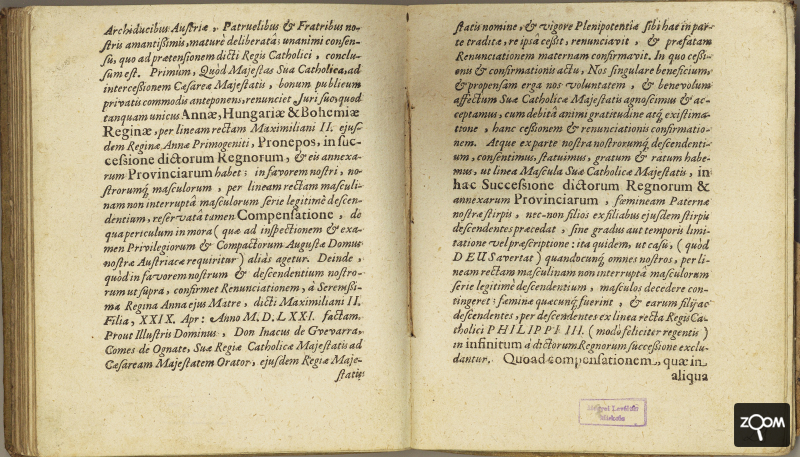 Archiducibus Austriæ, Patruelibus & Fratribus no-
stris amantissimis, maturè deliberatâ: unanimi consen-
sû, quo ad prætensionem dicti Regis Catholici, conclu-
sum est. Primùm, Quòd Majestas Sua Catholica, ad
intercessionem Cæsareæ Majestatis, bonum publicum
privatis commodis anteponens, renunciet Juri suo, quod
tanquam unicus Annæ, Hungariæ & Bohemiæ
Reginæ, per lineam rectam Maximiliani II. ejus-
dem Reginæ Annæ Primogeniti, Pronepos, in suc-
cessione dictorum Regnorum, & eis annexa-
rum Provinciarum habet: in favorem nostri, no-
strorumq́; masculorum, per lineam rectam masculi-
nam non interruptâ masculorum serie legitimè descen-
dentium, reservatâ tamen Compensatione, de
qua periculum in mora (quæ ad inspectionem & exa-
men Privilegiorum & Compactorum Augustæ Domus
nostræ Austriacæ requiritur) aliàs agetur. Deinde,
quòd in favorem nostrum & descendentium nostro-
rum ut suprà, confirmet Renunciationem, à Serenissi-
ma Regina Anna ejus Matre, dicti Maximiliani II.
Filia, XXIX. Apr: Anno M. D. LXXI. factam.
Prout Illustris Dominus, Don Inacus de Gvevarra,
Comes de Ognate, Suæ Regiæ Catholicæ Majestatis ad
Cæsaream Majestatem Orator, ejusdem Regiæ Maje-
statis
statis nomine, & vigore Plenipotentiæ sibi hac in par-
te traditæ, re ipsâ cessit, renunciavit, & præfatam
Renunciationem maternam confirmavit. In quo cessi-
onis & confirmationis actu, Nos singulare beneficium,
& propensam erga nos voluntatem, & benevolum
affectum Suæ Catholicæ Majestatis agnoscimus & ac-
ceptamus, cum debitâ animi gratitudine atq́; existima-
tione, hanc cessionem & renunciationis confirmatio-
nem. Atque ex parte nostra nostrorumq́; descendenti-
um, consentimus, statuimus, gratum & ratum habe-
mus, ut linea Mascula Suæ Catholicæ Majestatis, in
hac Successione dictorum Regnorum &
annexarum Provinciarum, fœmineam Paternæ
nostræ stirpis, nec-non filios ex filiabus ejusdem stirpis
descendentes præcedat, sine gradus aut temporis limi-
tatione vel præscriptione: ita quidem, ut casu, (quòd
DEUS avertat) quandocunq́; omnes nostros, per li-
neam rectam masculinam non interruptâ masculorum
serie legitimè descendentium, masculos decedere con-
tingeret: fœminæ quæcunq́; fuerint, & earum filij ac
descendentes, per descendentes ex linea recta Regis Ca-
tholici PHILIPPI III. (modò feliciter regentis)
in infinitum à dictorum Regnorum successione exclu-
dantur. Quoad compensationem, quæ in
aliqua
ZOOM